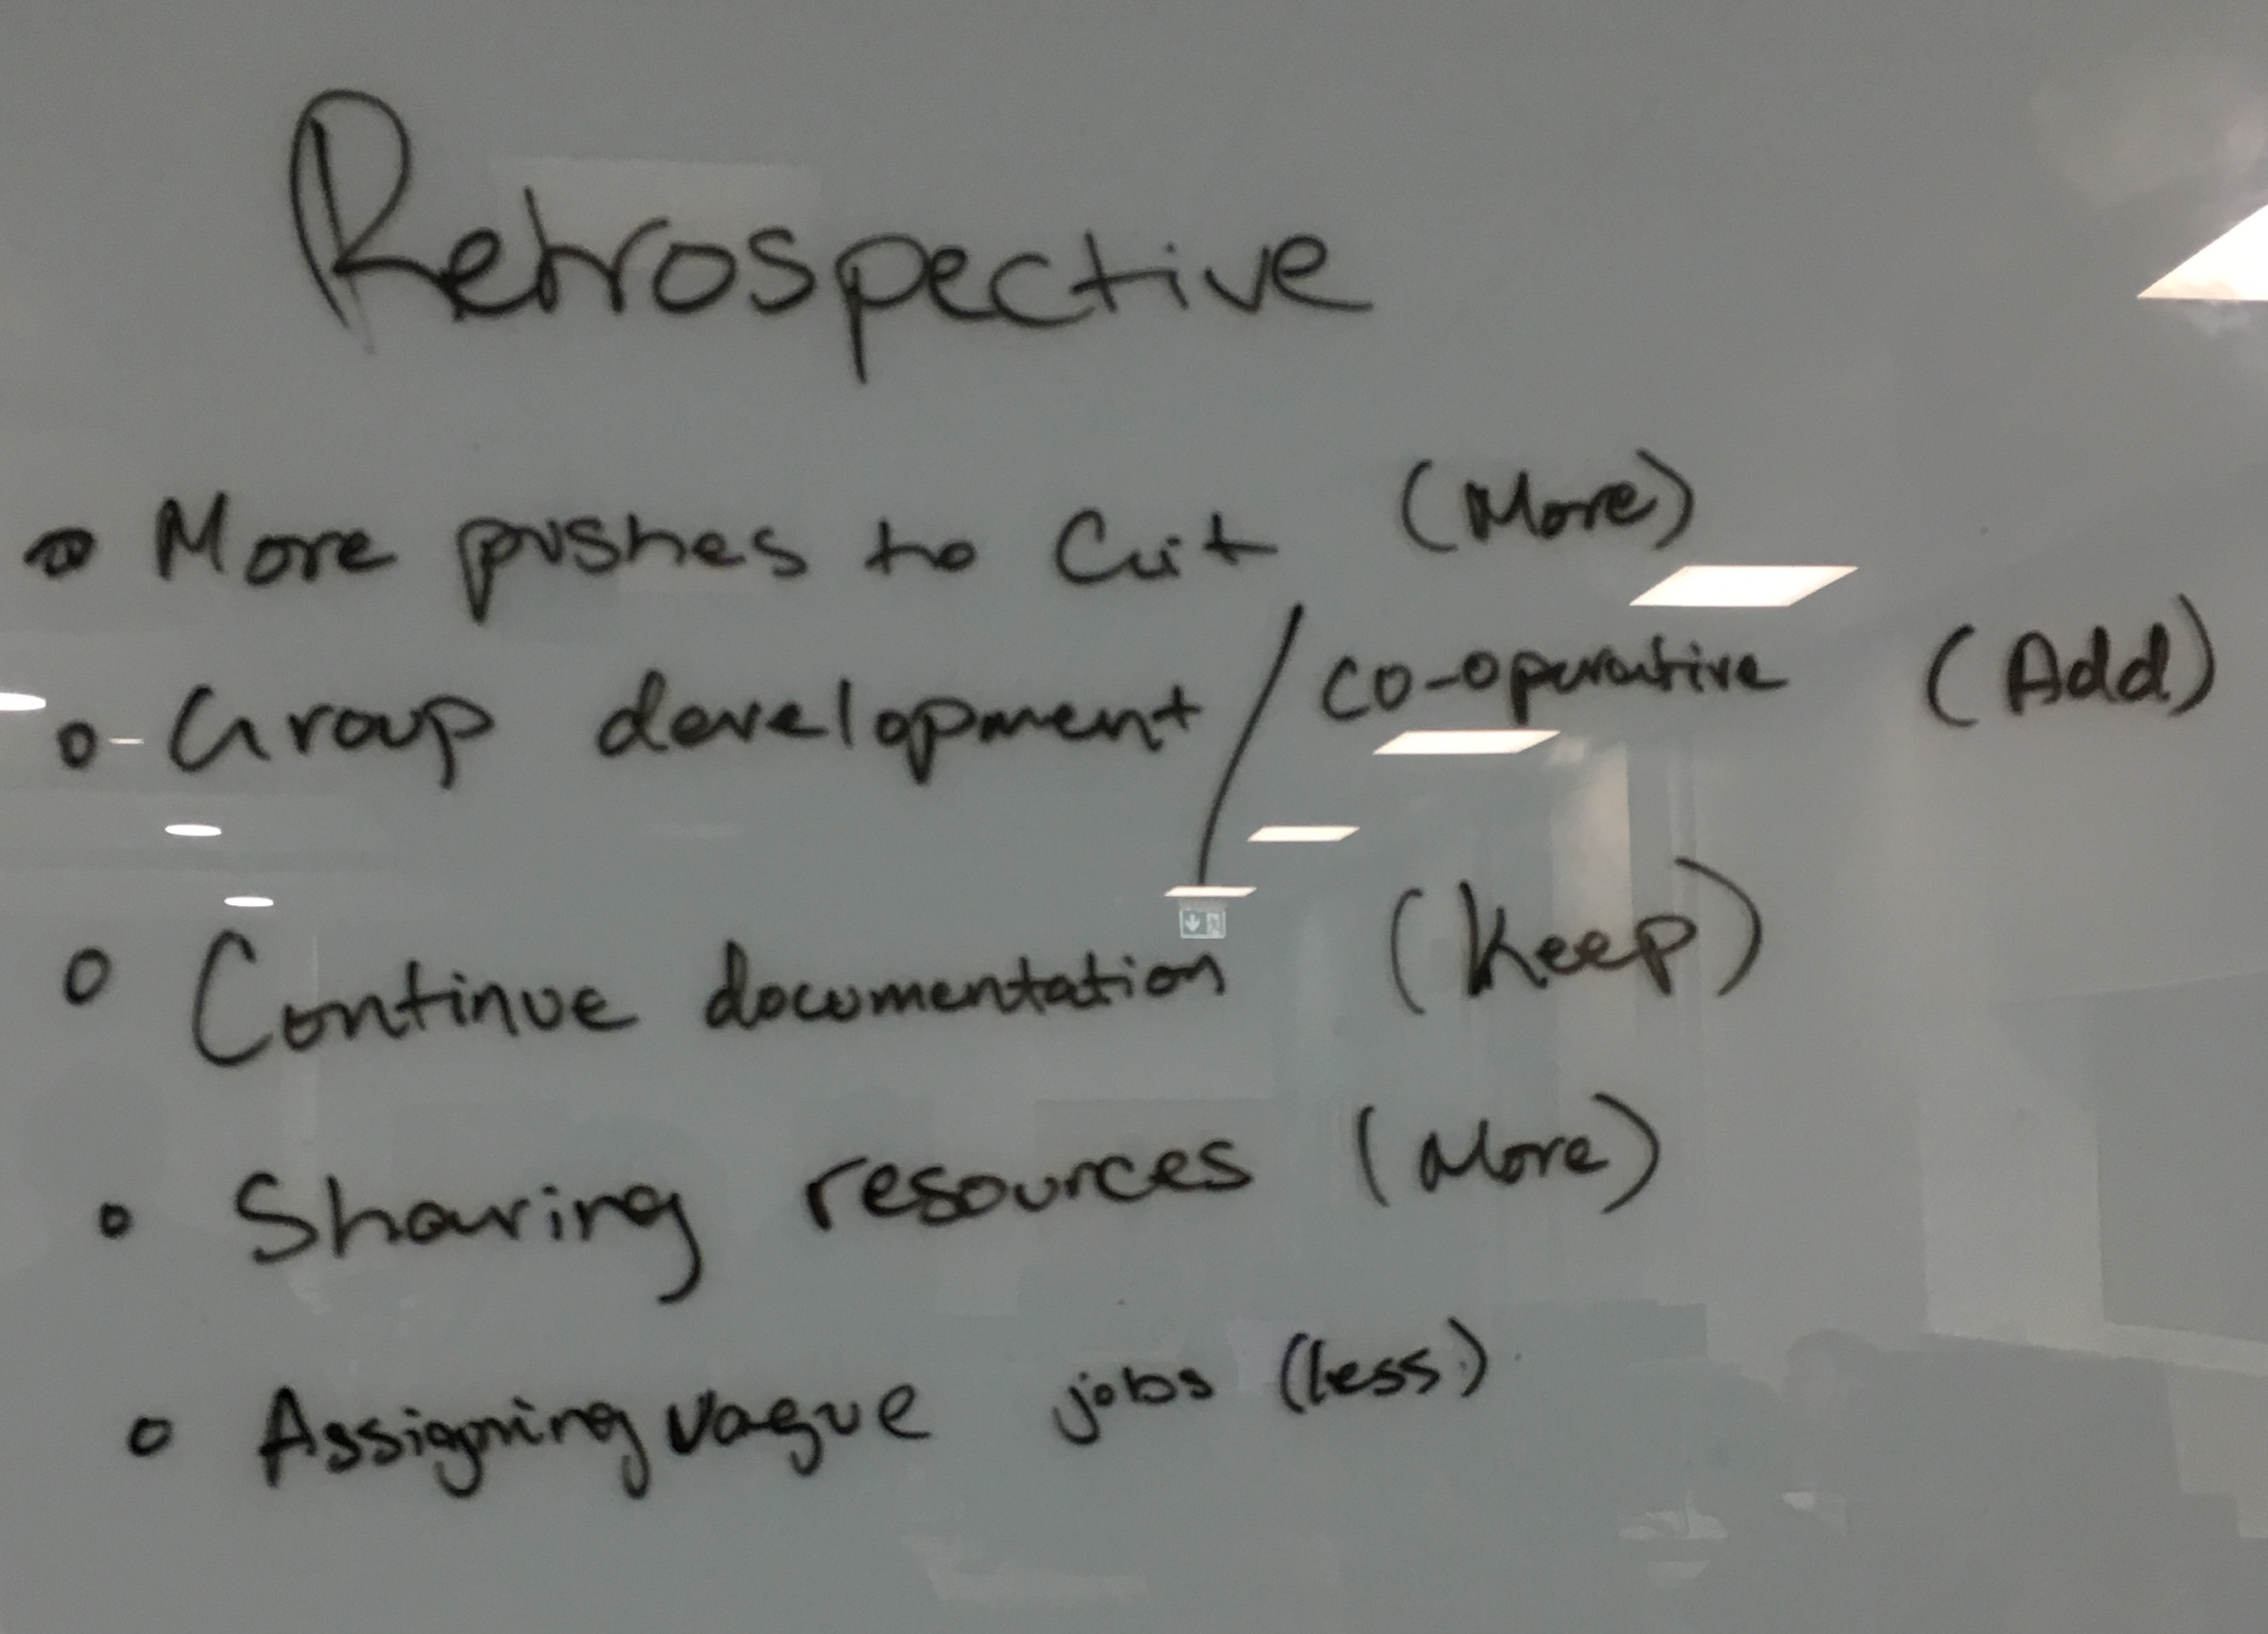 Retrospective
• More pushes to Git (More)
• Group development / co-operative (Add)
• Continue documentation (Keep)
• Sharing resources (More)
• Assigning vague jobs (less)